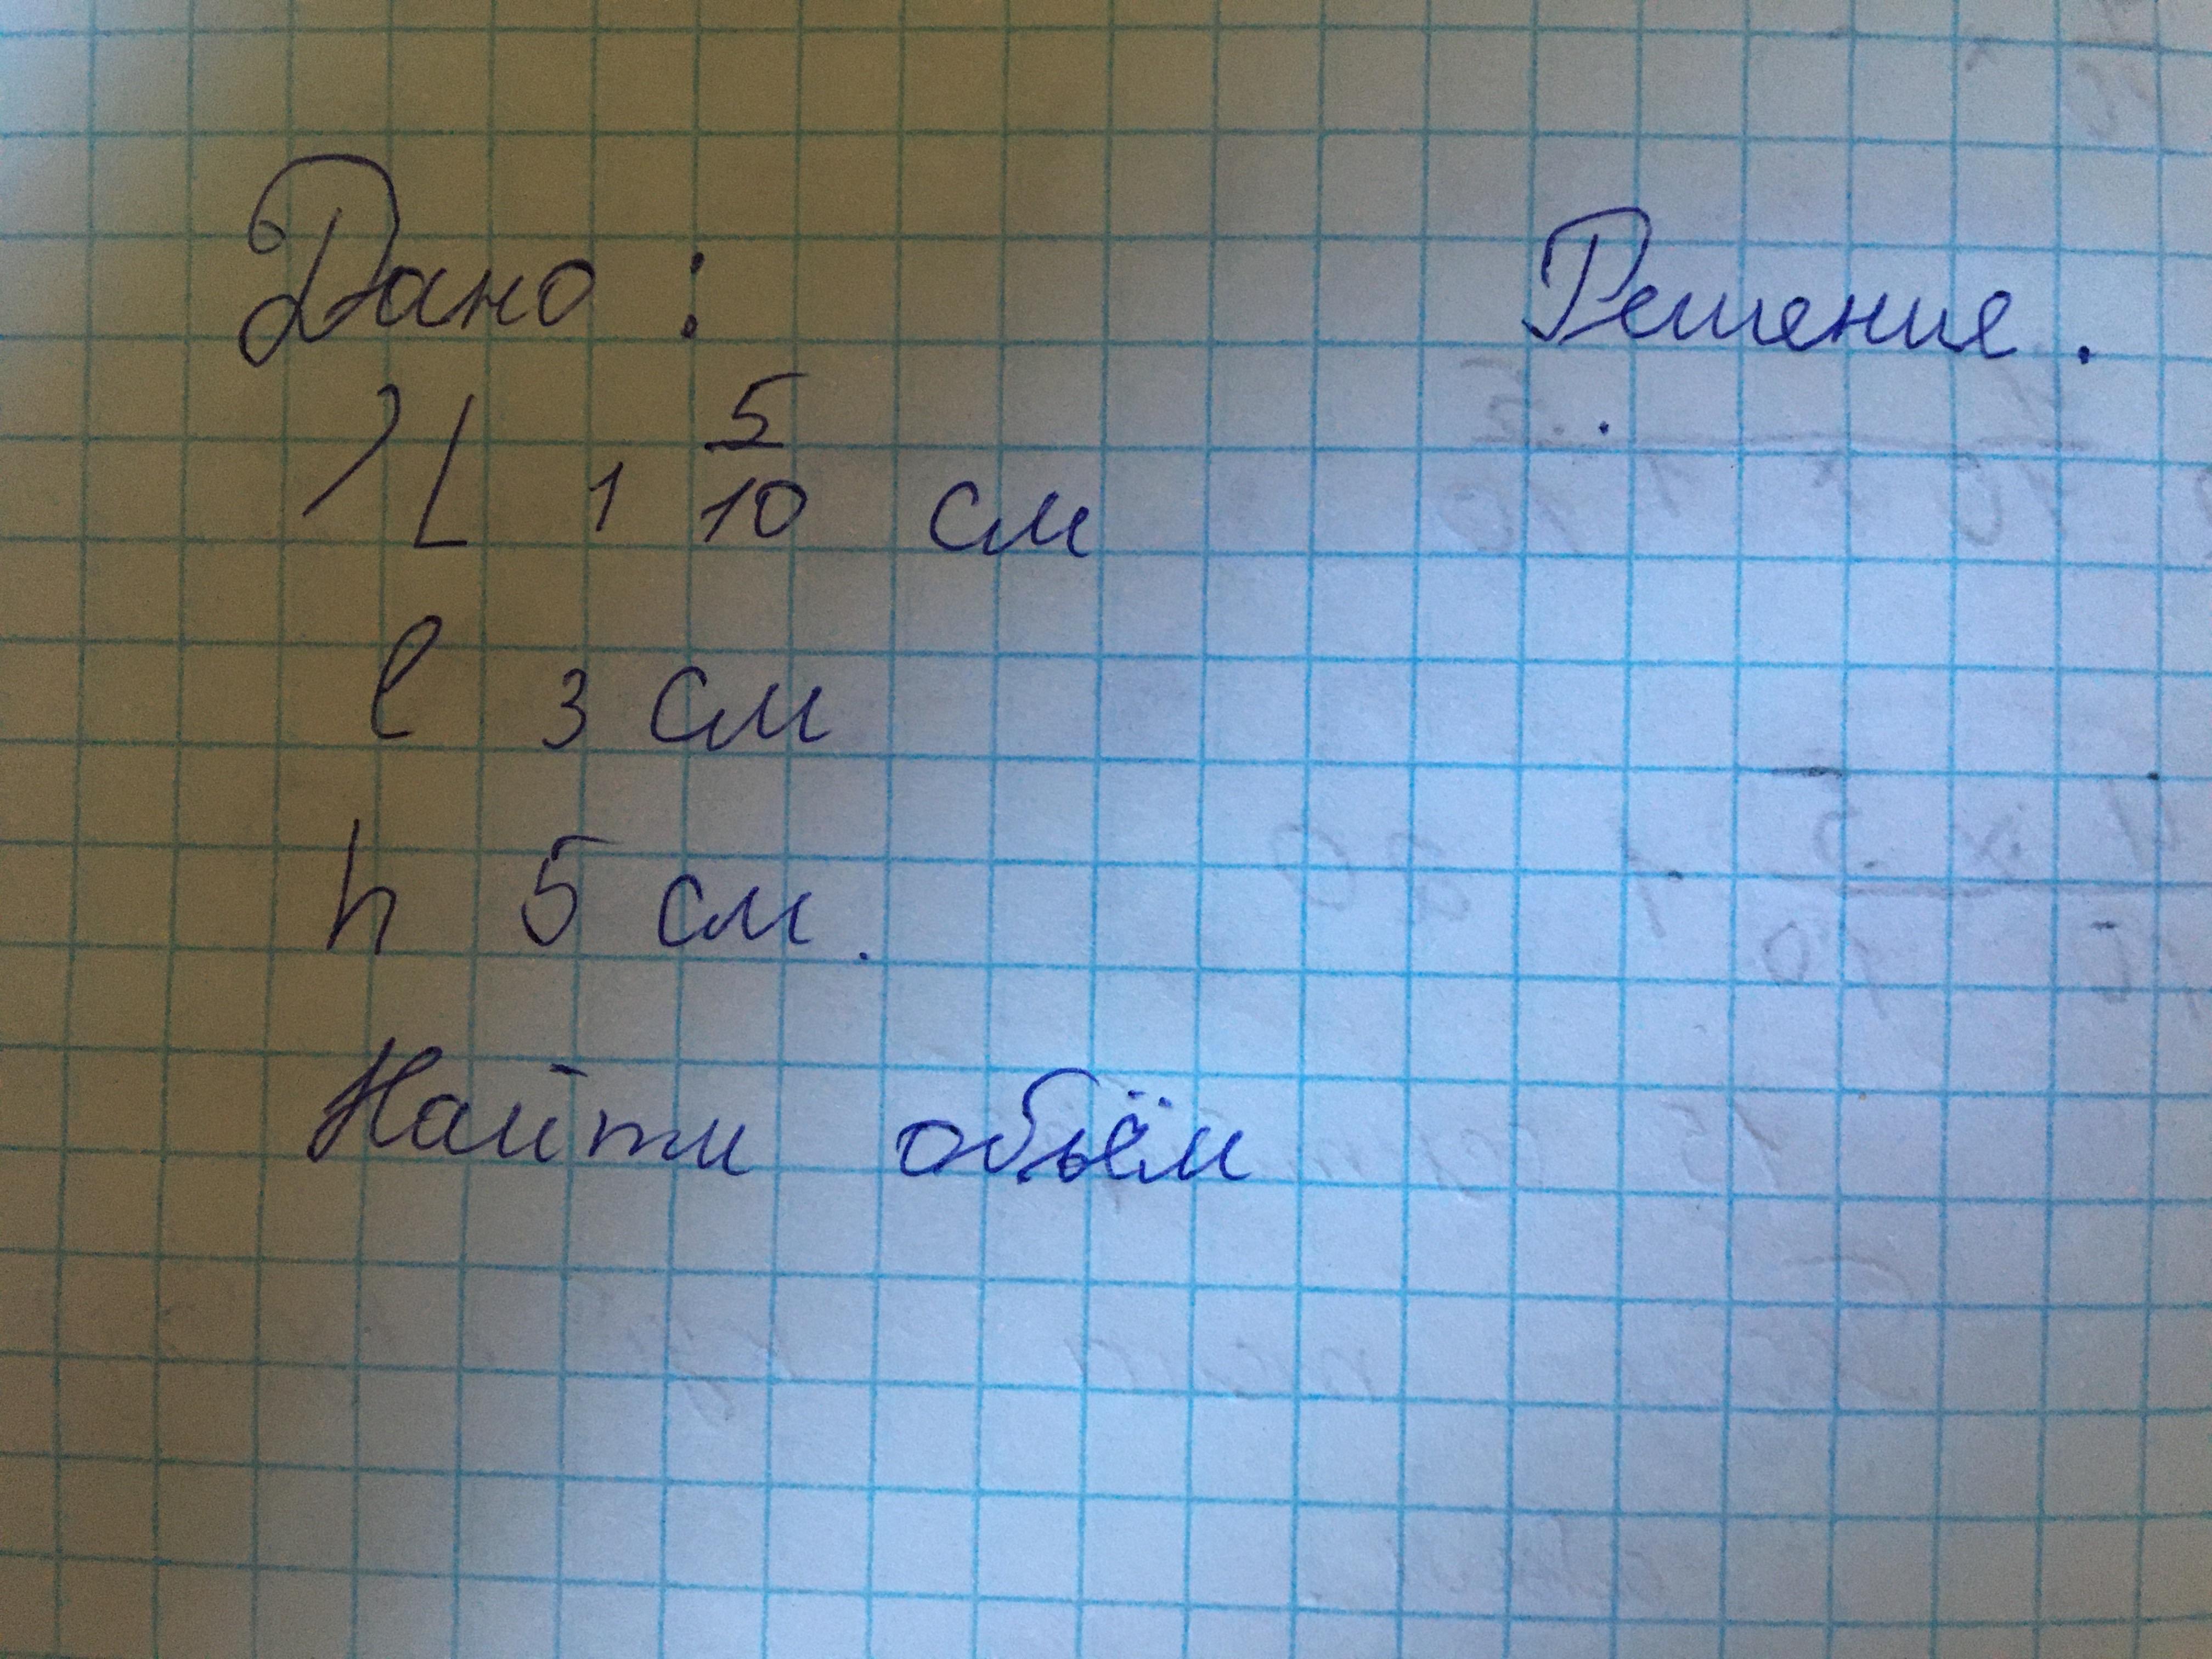 Дано: Решение.
L 1 5/10 см
l 3 см
h 5 см.
Найти объём